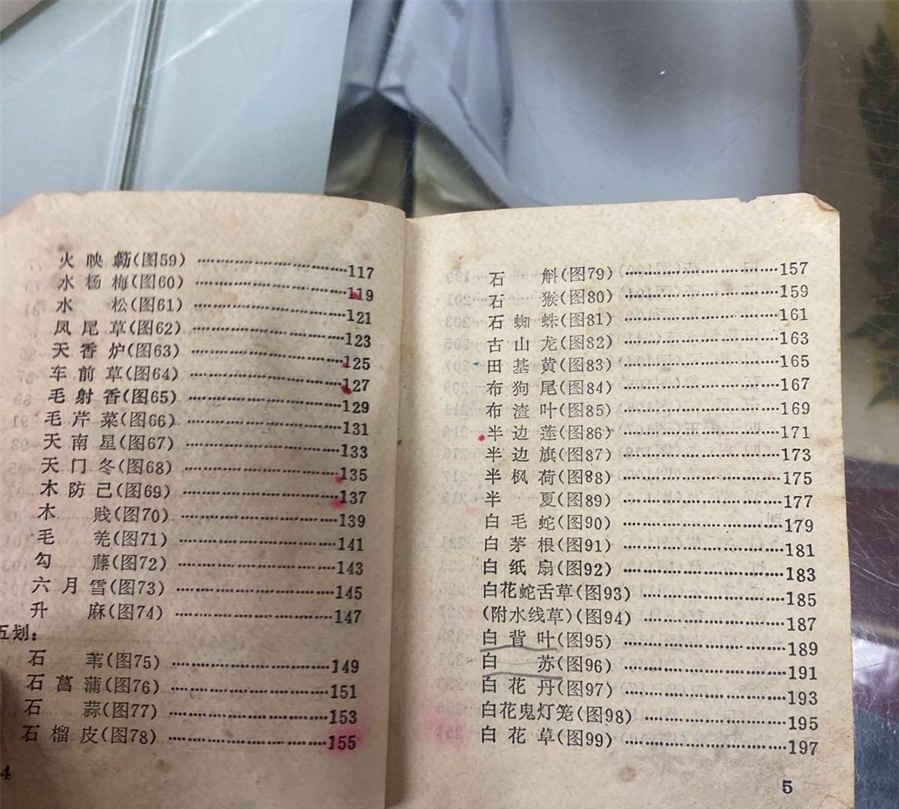 火映蓢(图59)……117
水杨梅(图60)……119
水松(图61)……121
凤尾草(图62)……123
天香炉(图63)……125
车前草(图64)……127
毛射香(图65)……129
毛芹菜(图66)……131
天南星(图67)……133
天门冬(图68)……135
木防己(图69)……137
木贱(图70)……139
毛羌(图71)……141
勾藤(图72)……143
六月雪(图73)……145
升麻(图74)……147
五划:
石苇(图75)……149
石菖蒲(图76)……151
石蒜(图77)……153
石榴皮(图78)……155
4
石斛(图79)……157
石猴(图80)……159
石蜘蛛(图81)……161
古山龙(图82)……163
田基黄(图83)……165
布狗尾(图84)……167
布渣叶(图85)……169
半边莲(图86)……171
半边旗(图87)……173
半枫荷(图88)……175
半夏(图89)……177
白毛蛇(图90)……179
白茅根(图91)……181
白纸扇(图92)……183
白花蛇舌草(图93)……185
(附水线草)(图94)……187
白背叶(图95)……189
白苏(图96)……191
白花丹(图97)……193
白花鬼灯笼(图98)……195
白花草(图99)……197
5